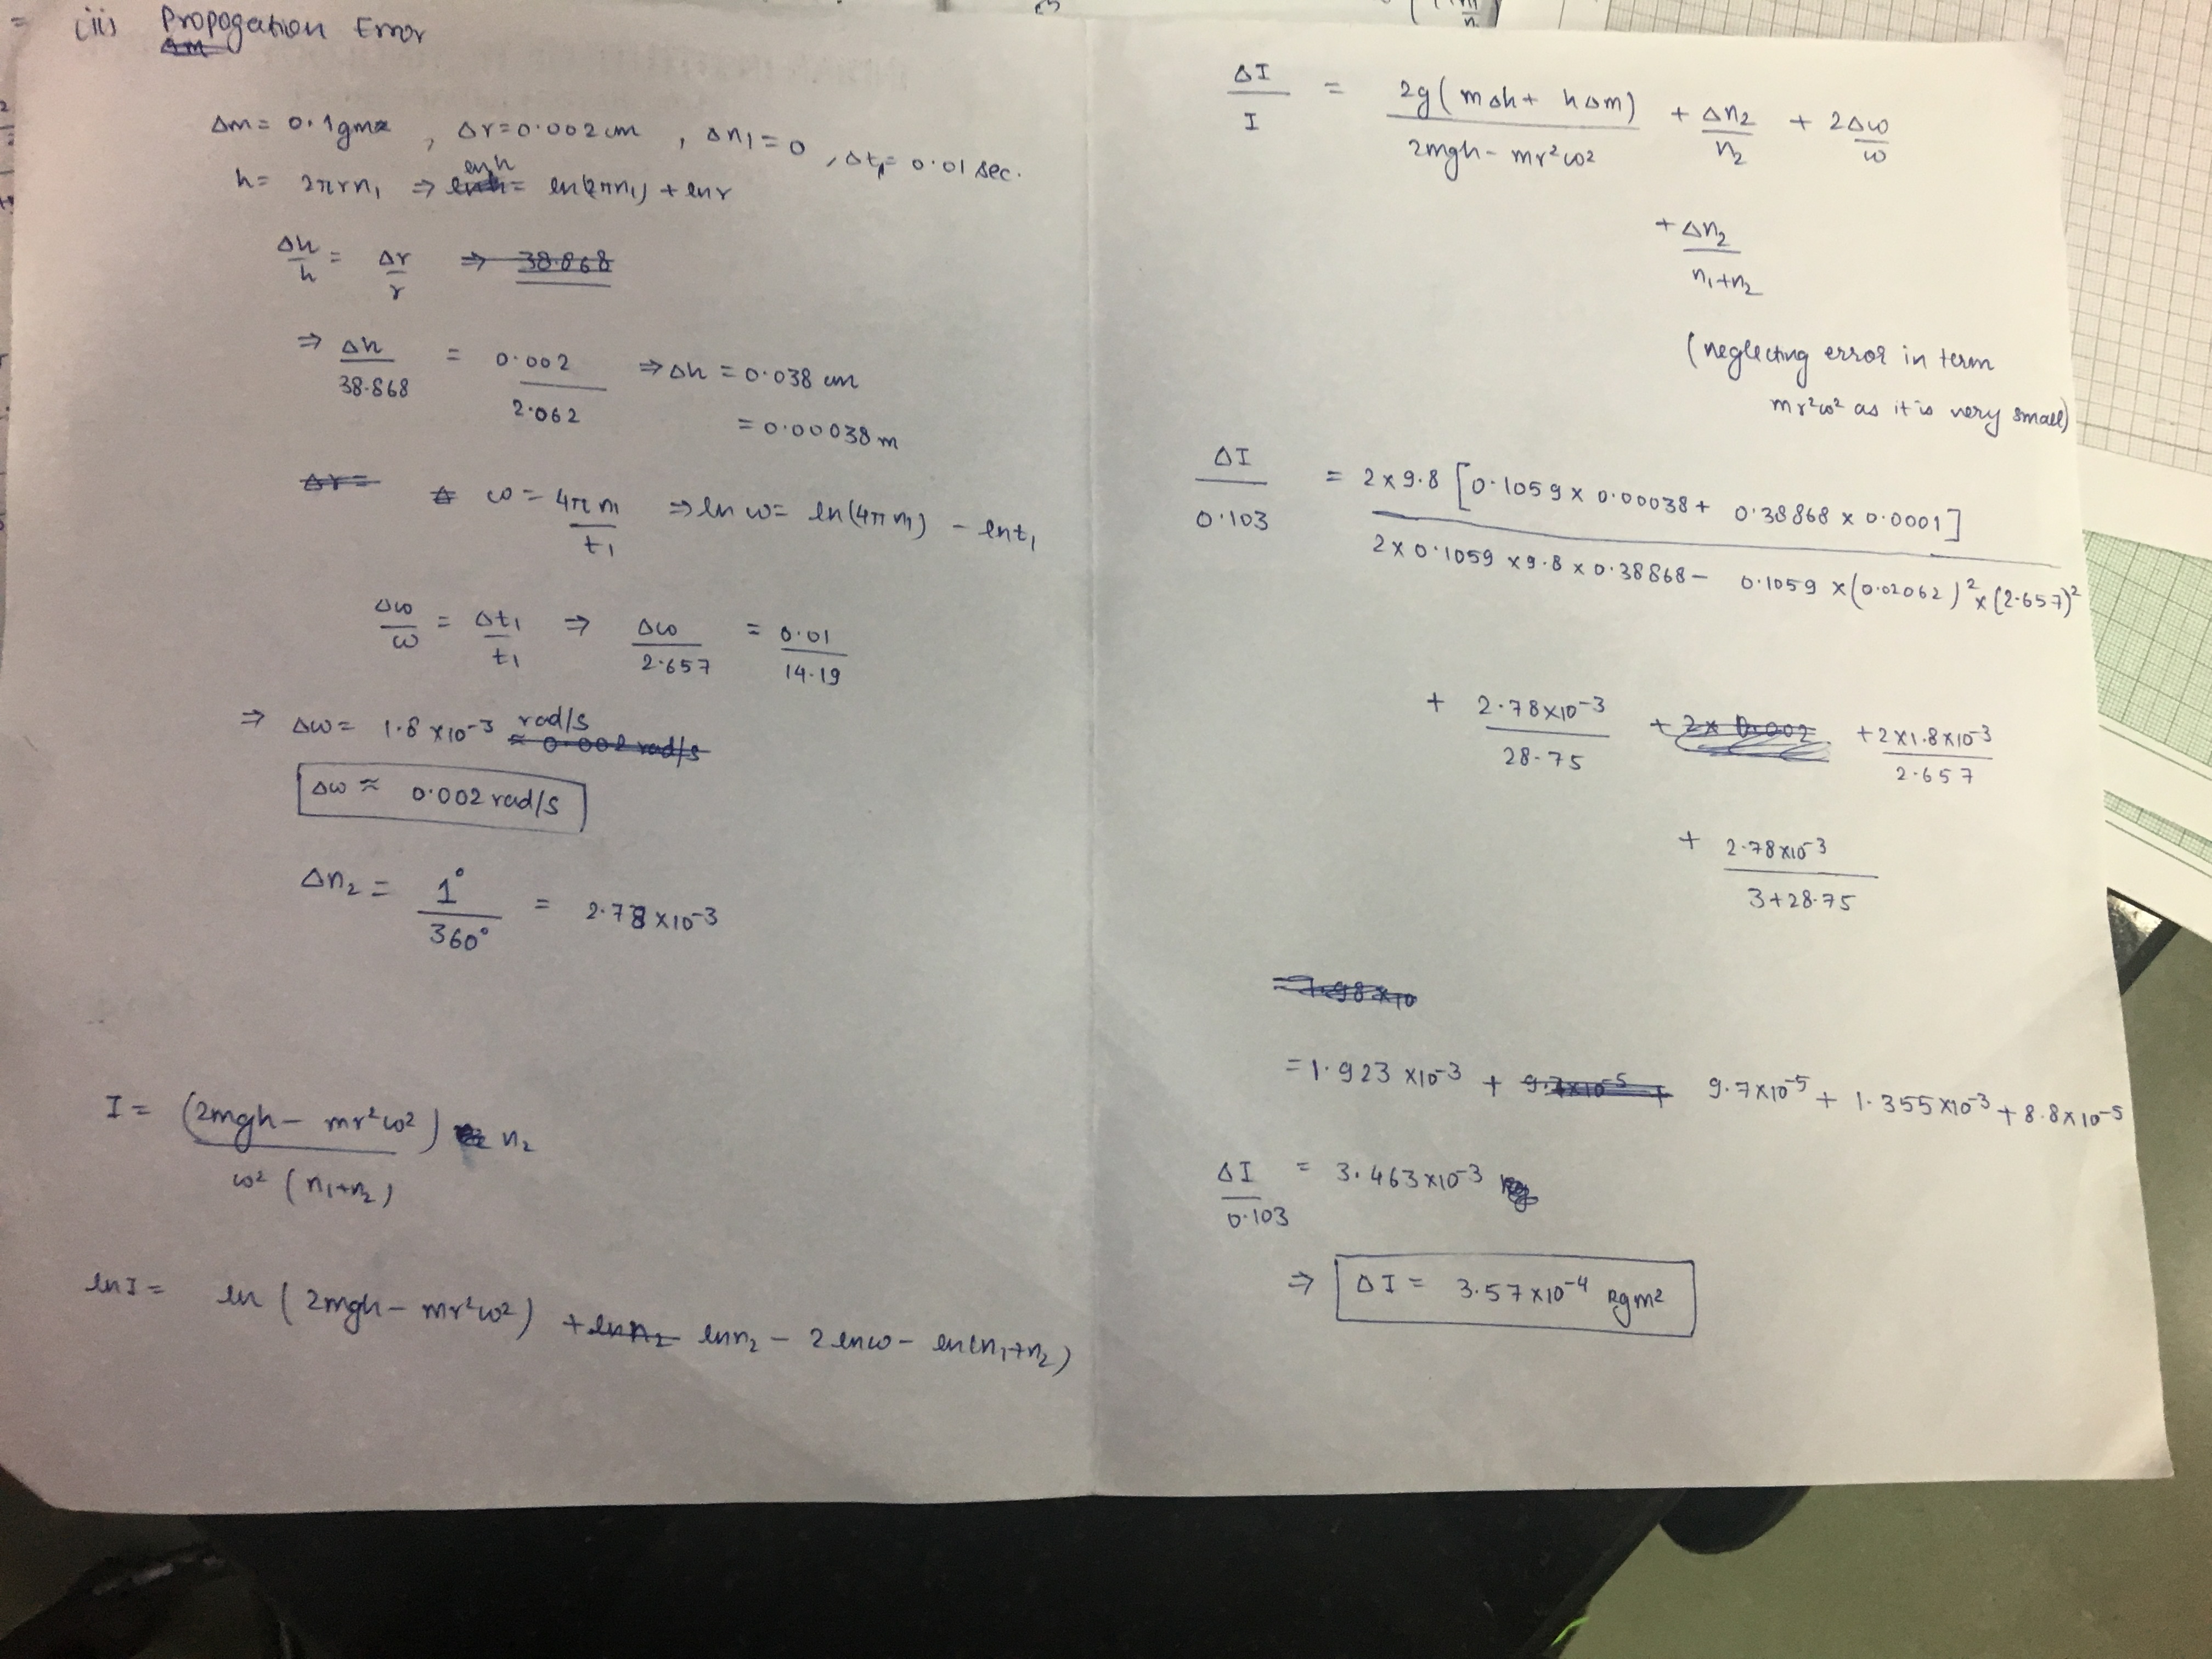 (ii) Propogation Error
Δm
Δm = 0.1gm , Δr = 0.002 cm , Δn₁ = 0 , Δt₁ = 0.01 sec.
h = 2πrn₁ ⇒ lnh = ln(2πn₁) + lnr
Δh/h = Δr/r ⇒ 38.868
⇒ Δh/38.868 = 0.002/2.062 ⇒ Δh = 0.038 cm
= 0.00038 m
Δr =
ω = 4πn₁/t₁ ⇒ ln ω = ln(4πn₁) - lnt₁
Δω/ω = Δt₁/t₁ ⇒ Δω/2.657 = 0.01/14.19
⇒ Δω = 1.8 ×10⁻³ rad/s ≈ 0.002 rad/s
Δω ≈ 0.002 rad/s
Δn₂ = 1°/360° = 2.78 ×10⁻³
I = (2mgh - mr²ω²) n₂ / ω² (n₁+n₂)
lnI = ln (2mgh - mr²ω²) + lnn₂ lnn₂ - 2 lnω - ln(n₁+n₂)
ΔI/I = 2g(mΔh + hΔm)/2mgh - mr²ω² + Δn₂/n₂ + 2Δω/ω
+ Δn₂/n₁+n₂
(neglecting error in term
mr²ω² as it is very small)
ΔI/0.103 = 2×9.8 [0.1059 × 0.00038 + 0.38868 × 0.0001] / 2×0.1059 ×9.8 × 0.38868 - 0.1059 ×(0.02062)² ×(2.657)²
+ 2.78×10⁻³/28.75 + 2× 0.002 + 2×1.8×10⁻³/2.657
+ 2.78×10⁻³/3+28.75
= 1.98×10
= 1.923 ×10⁻³ + 9.7×10⁻⁵ + 9.7×10⁻⁵ + 1.355×10⁻³ + 8.8×10⁻⁵
ΔI/0.103 = 3.463×10⁻³
⇒ ΔI = 3.57×10⁻⁴ kgm²